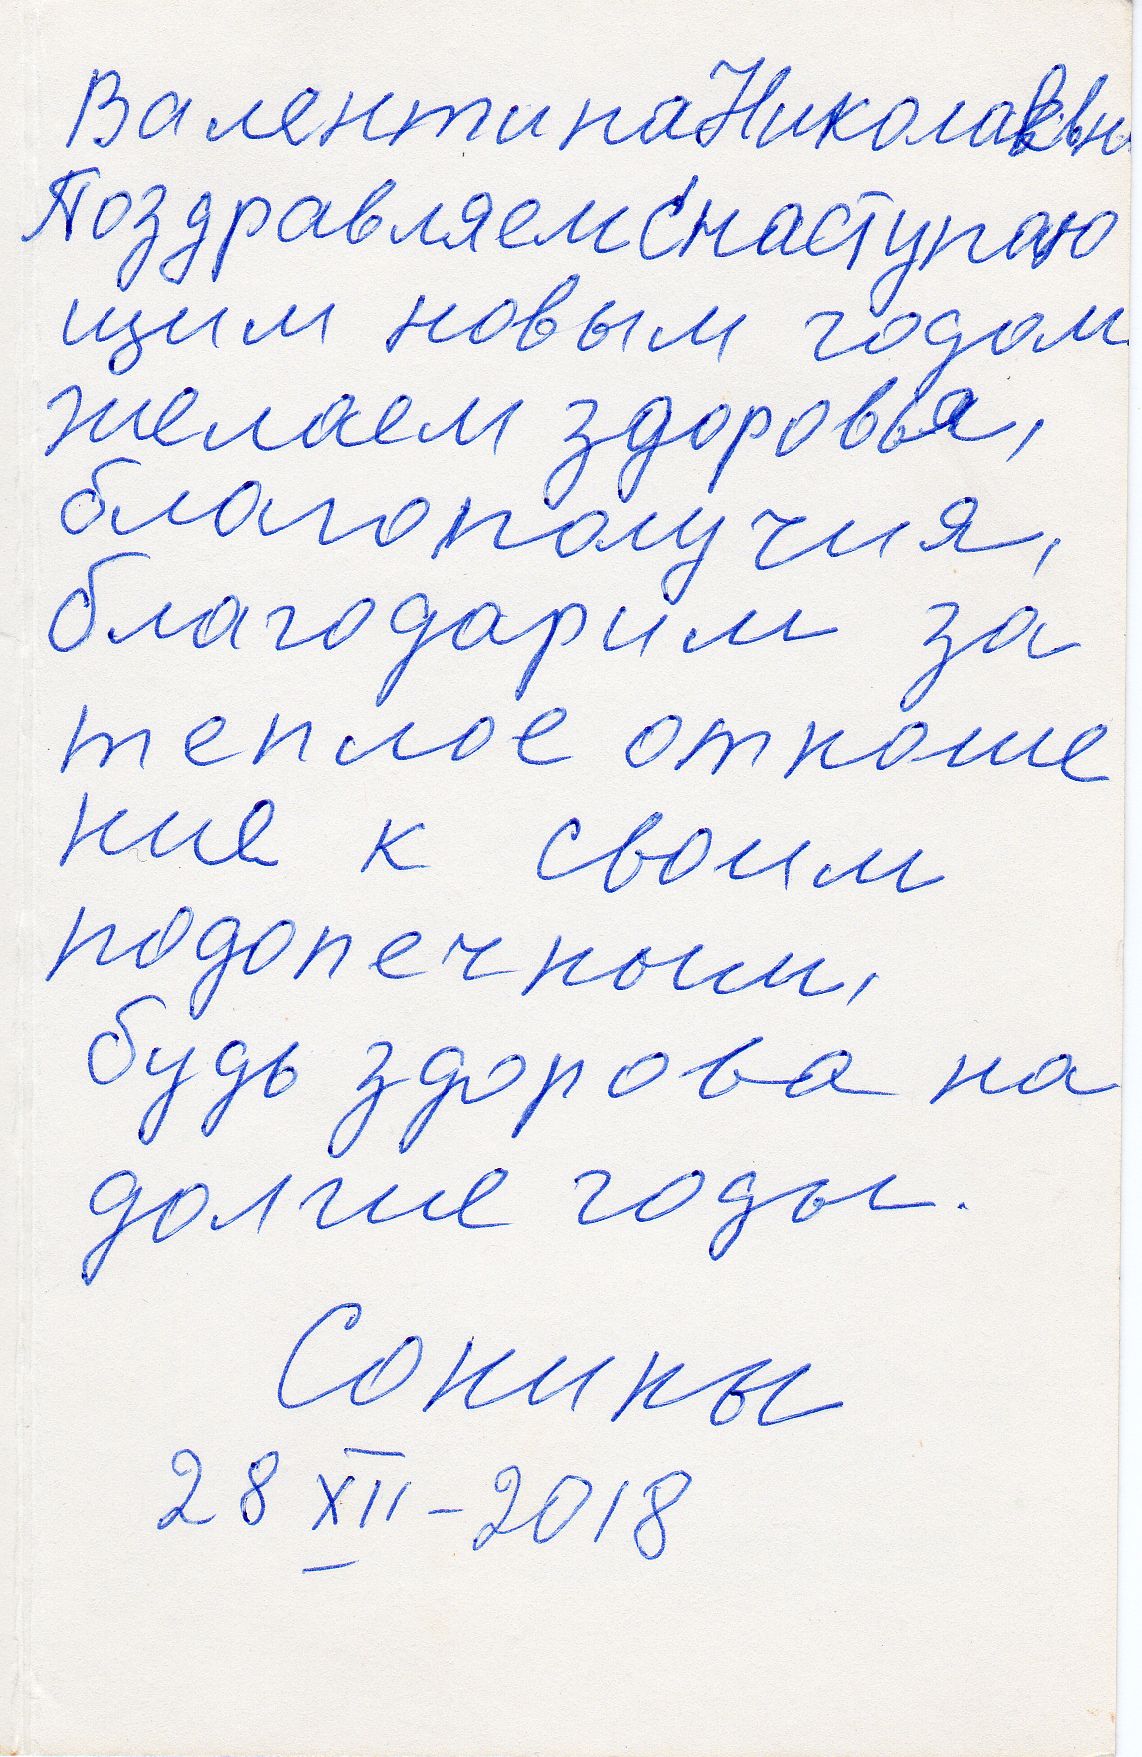 Валентина Николаевн
Поздравляем с наступаю
щим новым годом
желаем здоровья,
благополучия,
благодарим за
теплое отноше
ния к своим
подопечным,
будь здорова на
долгие годы.
Сонины
28 XII - 2018